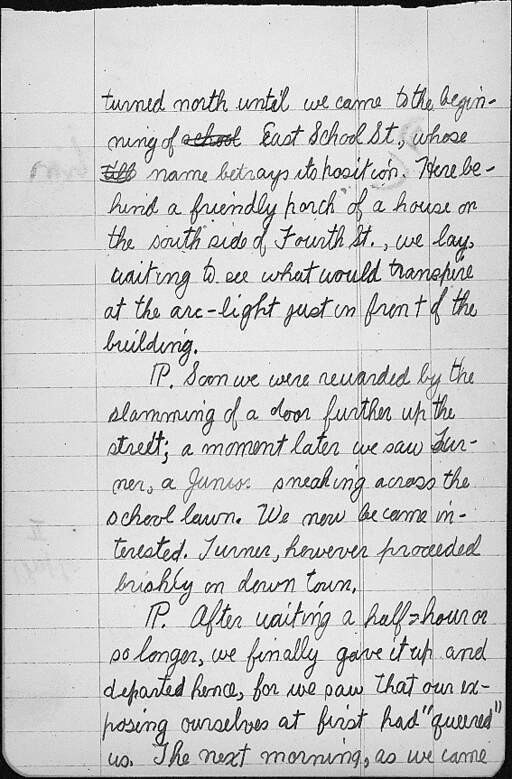 turned north until we came to the begin-
ning of school East School St., whose
till name betrays its position. Here be-
hind a friendly porch of a house on
the south side of Fourth St., we lay,
waiting to see what would transpire
at the arc-light just in front of the
building.
IP. Soon we were rewarded by the
slamming of a door further up the
street; a moment later we saw Tur-
ner, a Junior sneaking across the
school lawn. We now became in-
terested. Turner, however proceeded
briskly on down town.
IP. After waiting a half-hour or
so longer, we finally gave it up and
departed hence, for we saw that our ex-
posing ourselves at first had "queered"
us. The next morning, as we came